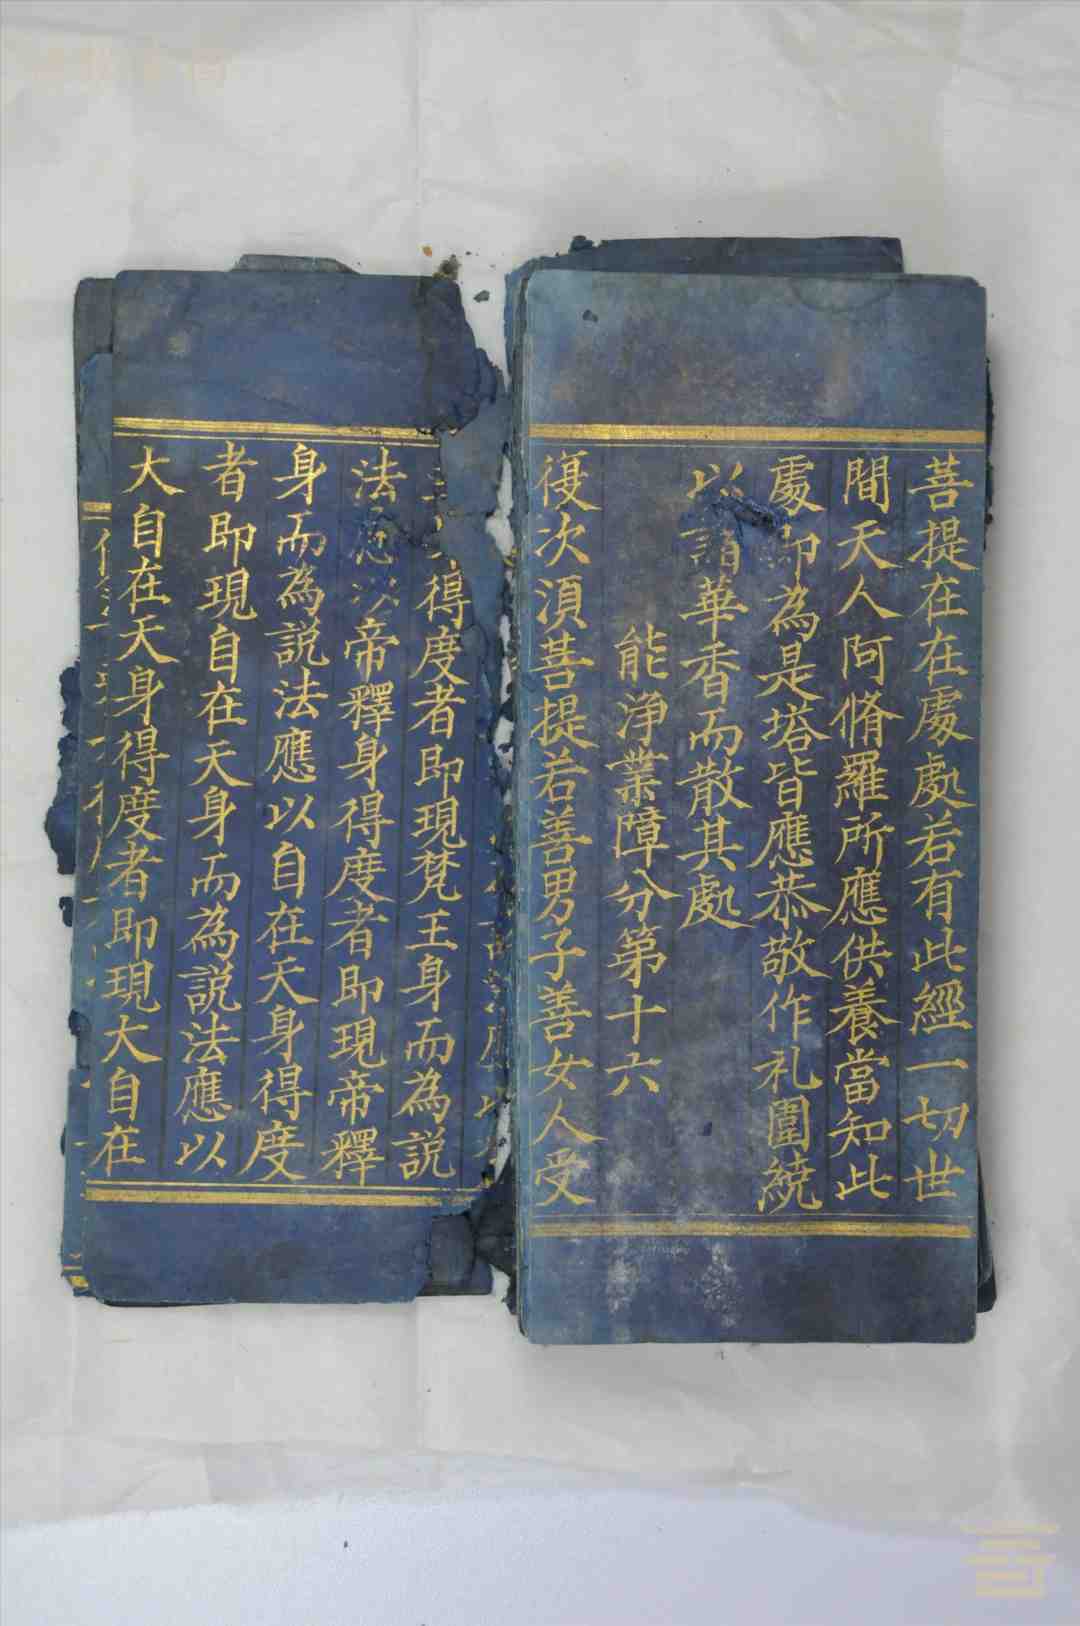 菩提在在處處若有此經一切世
間天人阿脩羅所應供養當知此
處即為是塔皆應恭敬作礼圍繞
以諸華香而散其處
能淨業障分第十六
復次湏菩提若善男子善女人受
得度者即現梵王身而為説
法應以帝釋身得度者即現帝釋
身而為説法應以自在天身得度
者即現自在天身而為説法應以
大自在天身得度者即現大自在